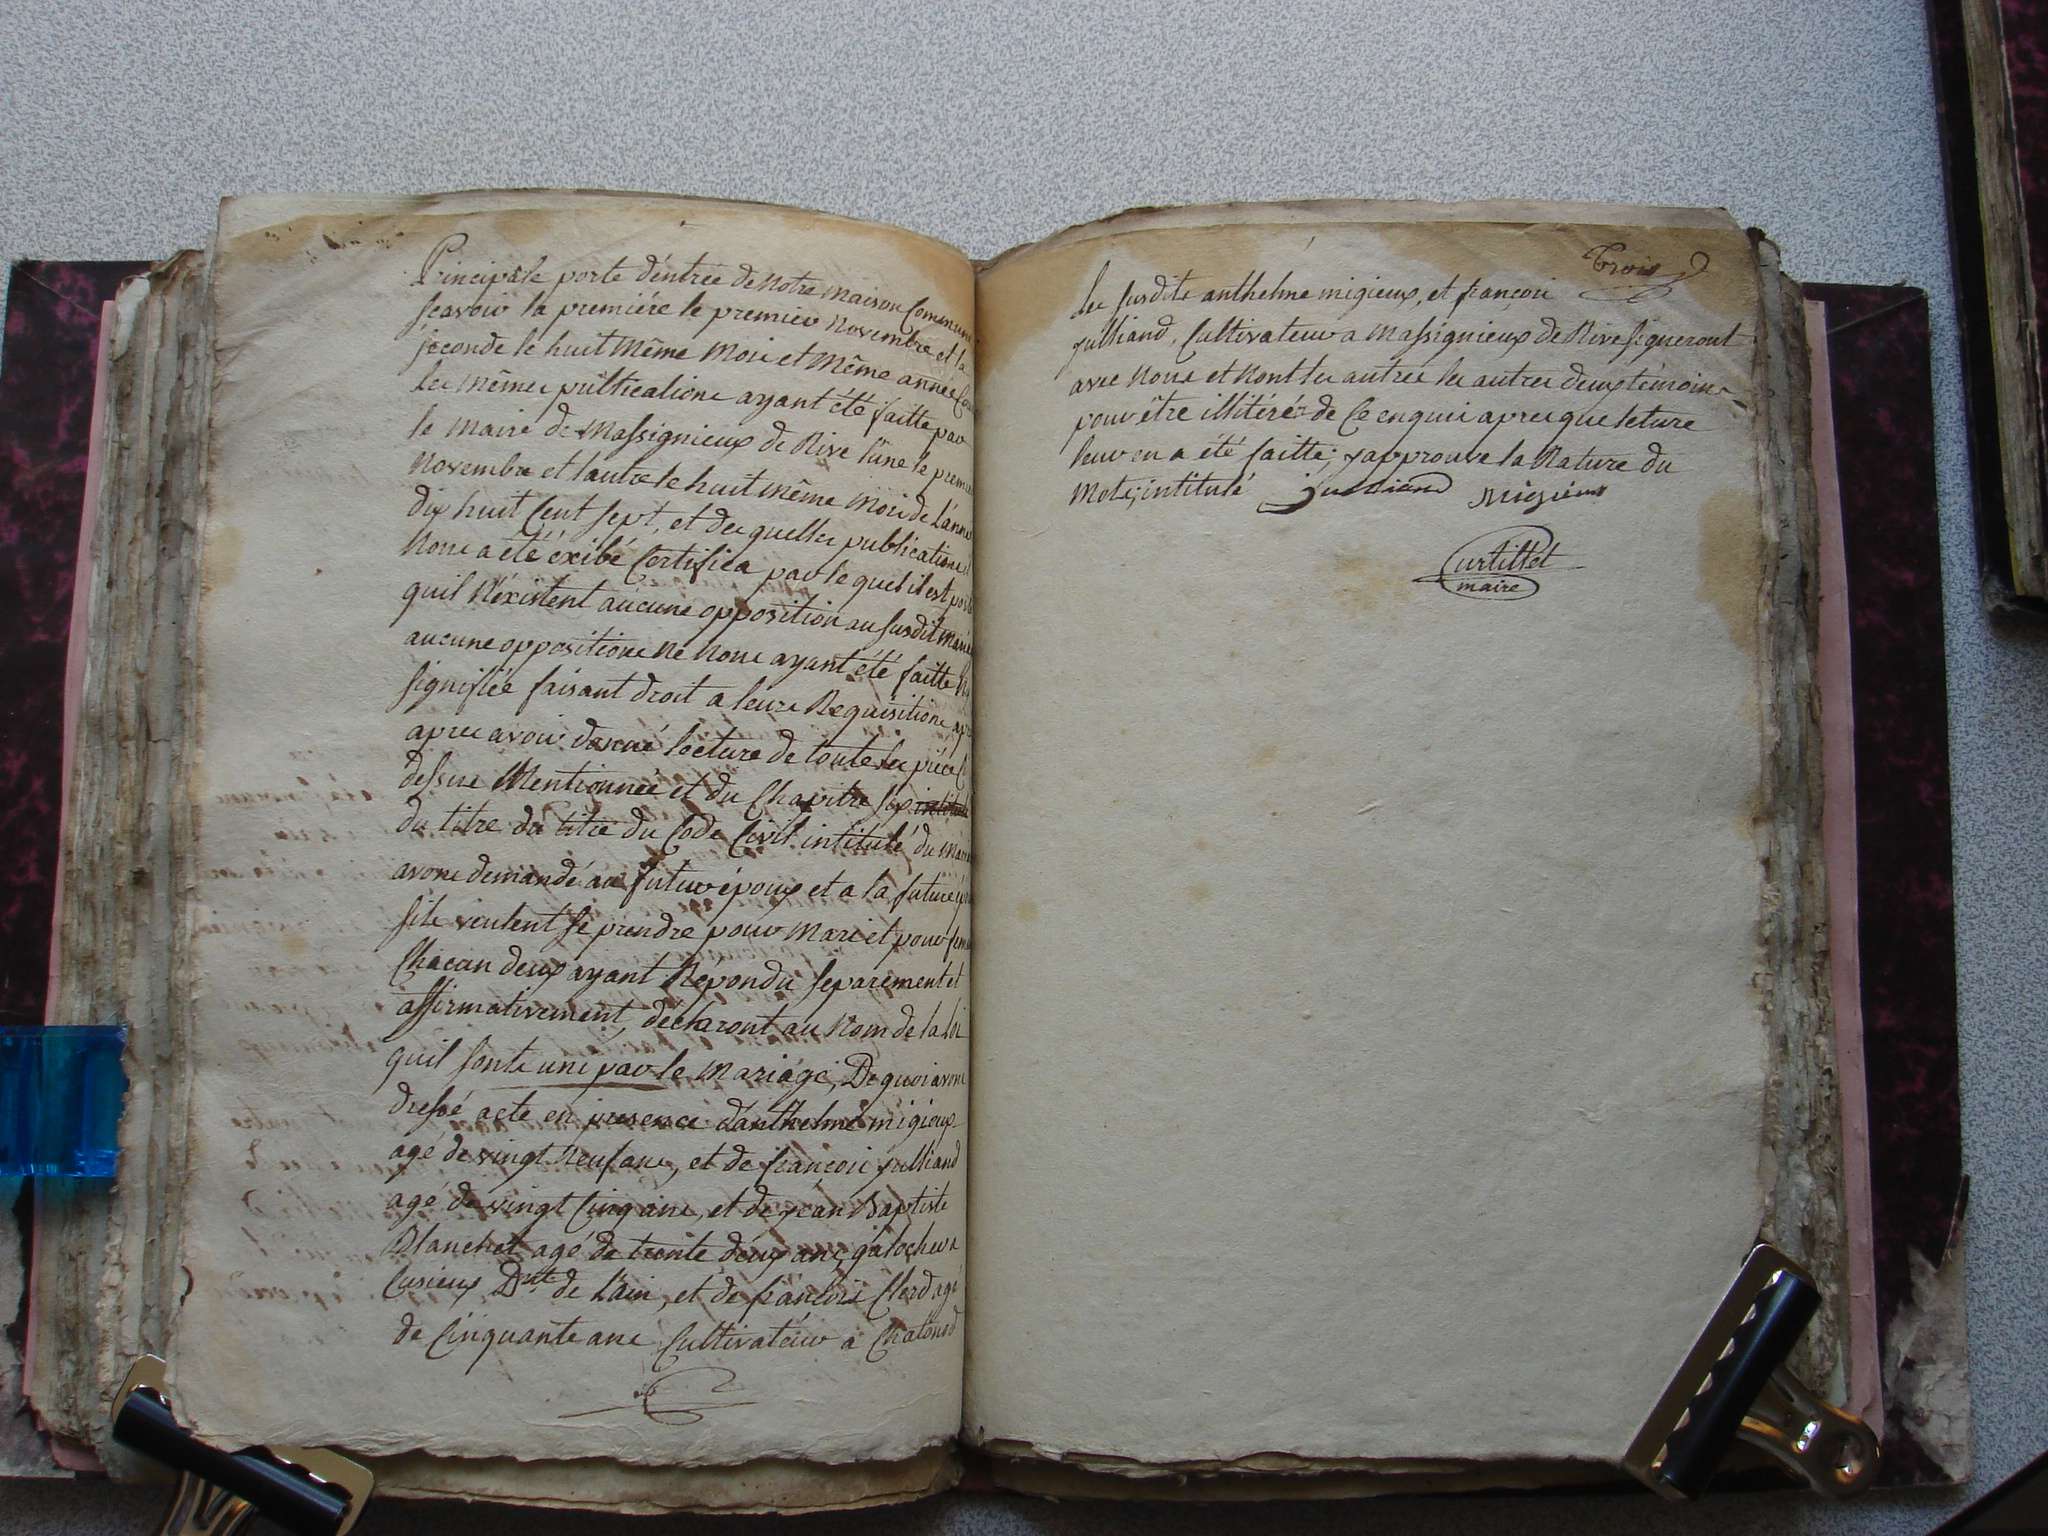 Principale porte d'entrée de Notre maison Commune
sçavoir la première le premier Novembre et la
seconde le huit Même Mois et Même année
les Mêmes publications ayant été faitte par
le Maire de Massignieux de Rive l'une le premier
Novembre et l'autre le huit Même Mois de L'année
dix huit Cent sept, et des quelles publications
Nous a été éxibé Certifica par le quel il est porté
quil N'éxistent aucune opposition au susdit
aucune oppositions Ne Nous ayant été faitte
signifiée faisant droit a leurs Requisitions
apres avoir donné lecture de toutes les pièces
dessus Mentionnée et du Chapitre six intitulé
du titre du titre du Code Civil intitulé du
avons demandé au futur époux et a la future
sils veulent se prendre pour Mari et pour
Chacun deux ayant Répondu separément et
affirmativement, declaront au Nom de la loi
quil sonts unis par le Mariage, De quoi avons
dressé acte en presence d'anthelme migieux
agé de vingt Neuf ans, et de françois julliand
agé de vingt Cinq ans, et de jean Baptiste
Blanchet agé de trente deux ans, galocheur a
Cusieux Dnt de L'ain, et de françois Clerd agé
de Cinquante ans Cultivateur a Chatonod
Trois
les susdits anthelme migieux, et françois
julliand, Cultivateur a Massignieux de Rive signeront
avec Nous et Nont les autres les autres deux témoins
pour être illitérés de Ce enquis apres que leture
leur en a été faitte; japprouve la Rature du
Mots; intitulé julliand Migieux
Curtillet
maire